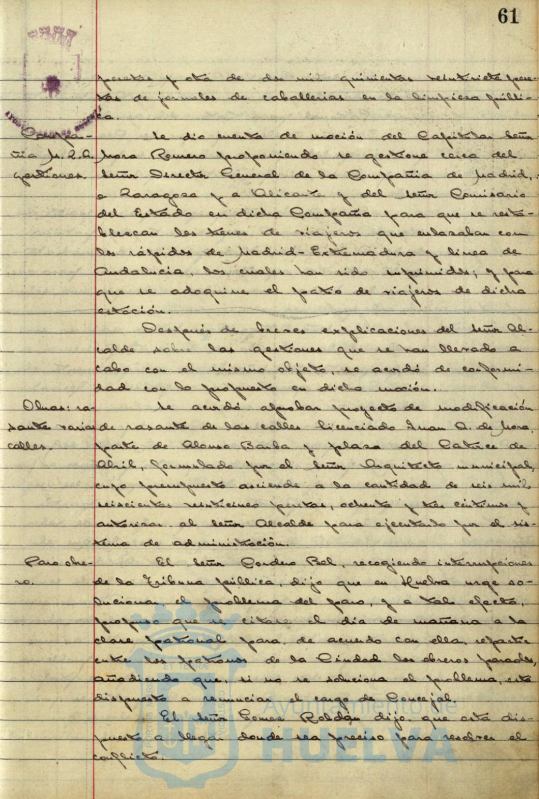 61
pesetas y otra de dos mil quinientas veintisiete pese-
tas de jornales de caballerías en la limpieza públi-
ca.
Compa-
ñía M.Z.A.
gestiones.
Se dio cuenta de moción del Capitular Señor
Mora Romero proponiendo se gestione cerca del
Señor Director General de la Compañía de Madrid,
a Zaragoza y a Alicante y del Señor Comisario
del Estado en dicha Compañía para que se resta-
blezcan los trenes de viajeros que enlazaban con
los rápidos de Madrid-Extremadura y línea de
Andalucía, los cuales han sido suprimidos; y para
que se adoquine el patio de viajeros de dicha
estación.
Después de breves explicaciones del Señor Al-
calde sobre las gestiones que se han llevado a
cabo con el mismo objeto, se acordó de conformi-
dad con lo propuesto en dicha moción.
Obras: ra-
sante varias
calles.
Se acordó aprobar proyecto de modificación
de rasante de las calles Licenciado Juan A. de Mora,
parte de Alonso Barba y plaza del Catorce de
Abril, formulado por el Señor Arquitecto municipal,
cuyo presupuesto asciende a la cantidad de seis mil
seiscientas veinticinco pesetas, ochenta y tres céntimos y
autorizar al Señor Alcalde para ejecutarlo por el sis-
tema de administración.
Paro obre-
ro.
El Señor Cordero Bel, recogiendo interrupciones
de la Tribuna pública, dijo que en Huelva urge so-
lucionar el problema del paro, y a tal efecto,
propuso que se citara el día de mañana a la
clase patronal para, de acuerdo con ella, repartir
entre los patronos de la Ciudad los obreros parados,
añadiendo que, si no se soluciona el problema, está
dispuesto a renunciar el cargo de Concejal.
El Señor Gómez Roldán dijo que está dis-
puesto a llegar donde sea preciso para resolver el
conflicto.
Ayuntamiento de
HUELVA